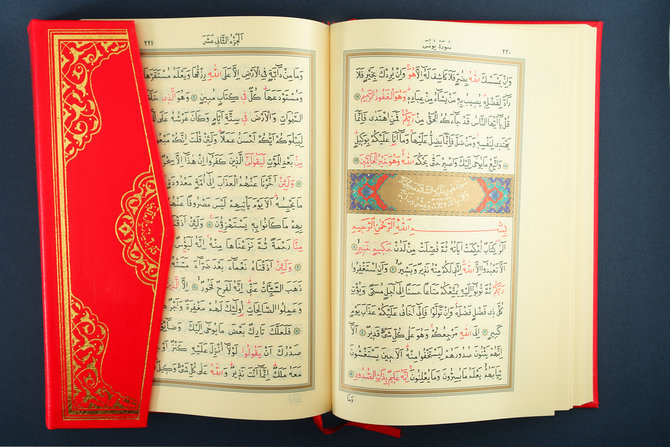 سُورَةُ يُونُسَ ٢٢٠
وَاِنْ يَمْسَسْكَ اللّٰهُ بِضُرٍّ فَلَا كَاشِفَ لَهُ اِلَّا هُوَ وَاِنْ يُرِدْكَ بِخَيْرٍ فَلَا
رَادَّ لِفَضْلِهِ يُصِيبُ بِهِ مَنْ يَشَاءُ مِنْ عِبَادِهِ وَهُوَ الْغَفُورُ الرَّحِيمُ
قُلْ يَا اَيُّهَا النَّاسُ قَدْ جَاءَكُمُ الْحَقُّ مِنْ رَبِّكُمْ فَمَنِ اهْتَدٰى فَاِنَّمَا
يَهْتَدِي لِنَفْسِهِ وَمَنْ ضَلَّ فَاِنَّمَا يَضِلُّ عَلَيْهَا وَمَا اَنَا عَلَيْكُمْ بِوَكِيلٍ
وَاتَّبِعْ مَا يُوحٰى اِلَيْكَ وَاصْبِرْ حَتّٰى يَحْكُمَ اللّٰهُ وَهُوَ خَيْرُ الْحَاكِمِينَ
سورة هود عليه السلام مكية
بِسْمِ اللّٰهِ الرَّحْمٰنِ الرَّحِيمِ
الٓرٰ كِتَابٌ اُحْكِمَتْ اٰيَاتُهُ ثُمَّ فُصِّلَتْ مِنْ لَدُنْ حَكِيمٍ خَبِيرٍ
اَلَّا تَعْبُدُوا اِلَّا اللّٰهَ اِنَّنِي لَكُمْ مِنْهُ نَذِيرٌ وَبَشِيرٌ وَاَنِ اسْتَغْفِرُوا
رَبَّكُمْ ثُمَّ تُوبُوا اِلَيْهِ يُمَتِّعْكُمْ مَتَاعًا حَسَنًا اِلٰى اَجَلٍ مُسَمًّى وَيُؤْتِ
كُلَّ ذِي فَضْلٍ فَضْلَهُ وَاِنْ تَوَلَّوْا فَاِنِّي اَخَافُ عَلَيْكُمْ عَذَابَ يَوْمٍ
كَبِيرٍ اِلَى اللّٰهِ مَرْجِعُكُمْ وَهُوَ عَلٰى كُلِّ شَيْءٍ قَدِيرٌ اَلَا
اِنَّهُمْ يَثْنُونَ صُدُورَهُمْ لِيَسْتَخْفُوا مِنْهُ اَلَا حِينَ يَسْتَغْشُونَ
ثِيَابَهُمْ يَعْلَمُ مَا يُسِرُّونَ وَمَا يُعْلِنُونَ اِنَّهُ عَلِيمٌ بِذَاتِ الصُّدُورِ
وَمَا
اَلْجُزْءُ الثَّانِي عَشَرَ ٢٢١
وَمَا مِنْ دَابَّةٍ فِي الْاَرْضِ اِلَّا عَلَى اللّٰهِ رِزْقُهَا وَيَعْلَمُ مُسْتَقَرَّهَا
وَمُسْتَوْدَعَهَا كُلٌّ فِي كِتَابٍ مُبِينٍ وَهُوَ الَّذِي
السَّمٰوَاتِ وَالْاَرْضَ فِي سِتَّةِ اَيَّامٍ وَكَانَ عَرْشُهُ عَلَى
لِيَبْلُوَكُمْ اَيُّكُمْ اَحْسَنُ عَمَلًا وَلَئِنْ قُلْتَ اِنَّكُمْ
مِنْ بَعْدِ الْمَوْتِ لَيَقُولَنَّ الَّذِينَ كَفَرُوا اِنْ هٰذَا اِلَّا سِحْرٌ
وَلَئِنْ اَخَّرْنَا عَنْهُمُ الْعَذَابَ اِلٰى اُمَّةٍ مَعْدُودَةٍ
مَا يَحْبِسُهُ اَلَا يَوْمَ يَأْتِيهِمْ لَيْسَ مَصْرُوفًا عَنْهُمْ
بِهِمْ مَا كَانُوا بِهِ يَسْتَهْزِؤُنَ وَلَئِنْ
مِنَّا رَحْمَةً ثُمَّ نَزَعْنَاهَا مِنْهُ اِنَّهُ لَيَؤُسٌ
وَلَئِنْ اَذَقْنَاهُ نَعْمَاءَ بَعْدَ ضَرَّاءَ مَسَّتْهُ
ذَهَبَ السَّيِّئَاتُ عَنِّي اِنَّهُ لَفَرِحٌ فَخُورٌ اِلَّا
وَعَمِلُوا الصَّالِحَاتِ اُولٰئِكَ لَهُمْ مَغْفِرَةٌ وَاَجْرٌ
فَلَعَلَّكَ تَارِكٌ بَعْضَ مَا يُوحٰى اِلَيْكَ وَضَائِقٌ
صَدْرُكَ اَنْ يَقُولُوا لَوْلَا اُنْزِلَ عَلَيْهِ كَنْزٌ اَوْ
مَعَهُ مَلَكٌ اِنَّمَا اَنْتَ نَذِيرٌ وَاللّٰهُ عَلٰى كُلِّ شَيْءٍ وَكِيلٌ